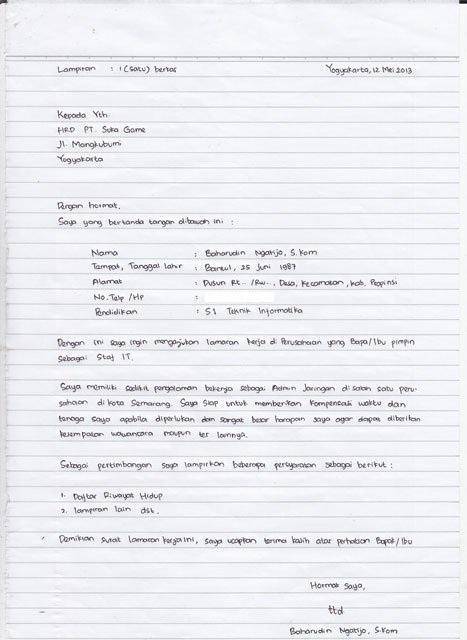 Lampiran : 1 (satu) berkas Yogyakarta, 12 Mei 2013
Kepada Yth.
HRD PT. Suka Game
Jl. Mangkubumi
Yogyakarta
Dengan hormat,
Saya yang bertanda tangan dibawah ini :
Nama : Baharudin Ngatijo, S.Kom
Tempat, Tanggal Lahir : Bantul, 25 Juni 1987
Alamat : Dusun Rt.. /Rw.., Desa, Kecamatan, Kab, Propinsi
No. Telp / HP :
Pendidikan : S1 Teknik Informatika
Dengan ini saya ingin mengajukan lamaran kerja di Perusahaan yang Bapa/Ibu pimpin
Sebagai Staf IT.
Saya memiliki sedikit pengalaman bekerja sebagai Admin Jaringan di salah satu peru-
sahaan di kota Semarang. Saya siap untuk memberikan kompensasi waktu dan
tenaga saya apabila diperlukan dan sangat besar harapan saya agar dapat diberikan
kesempatan wawancara maupun tes lainnya.
Sebagai pertimbangan saya lampirkan beberapa persyaratan sebagai berikut :
1. Daftar Riwayat Hidup
2. lampiran lain dst.
Demikian surat lamaran kerja ini, saya ucapkan terima kasih atas perhatian Bapak/Ibu
Hormat Saya,
ttd
Baharudin Ngatijo, S.Kom